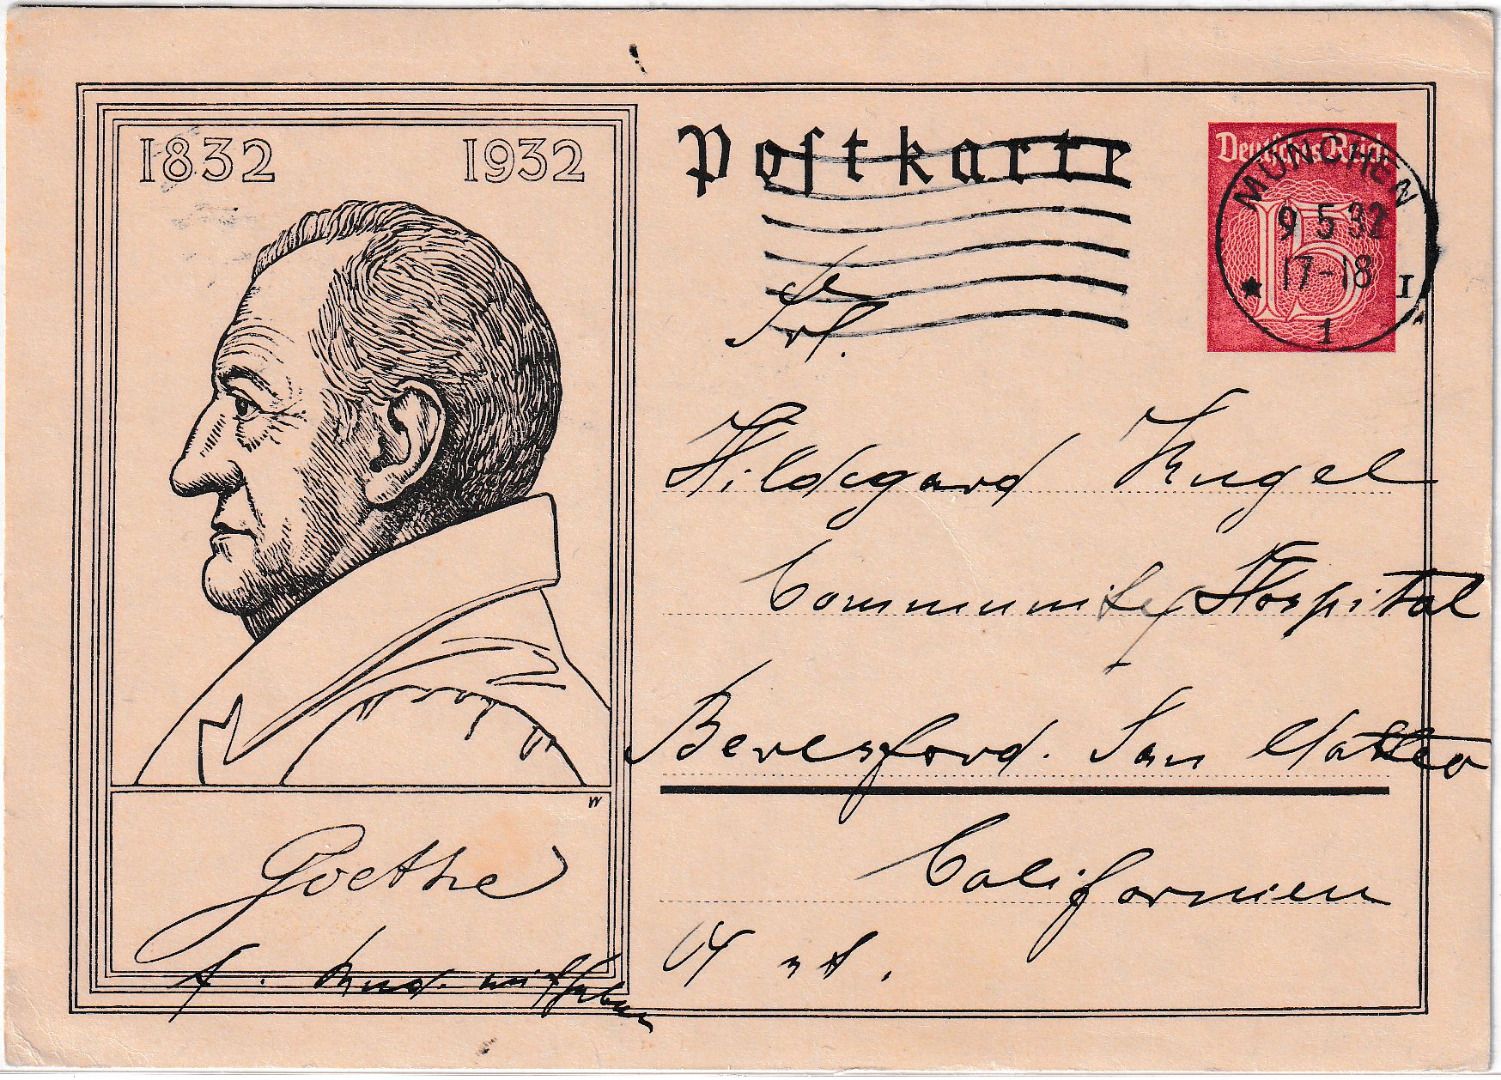 1832 1932
Postkarte
Deutsches Reich
15
MÜNCHEN
9 5 32
17-18
I
1
Frl.
Hildegard Kugel
Community Hospital
Beresford. San Mateo
Californien
W
Goethe